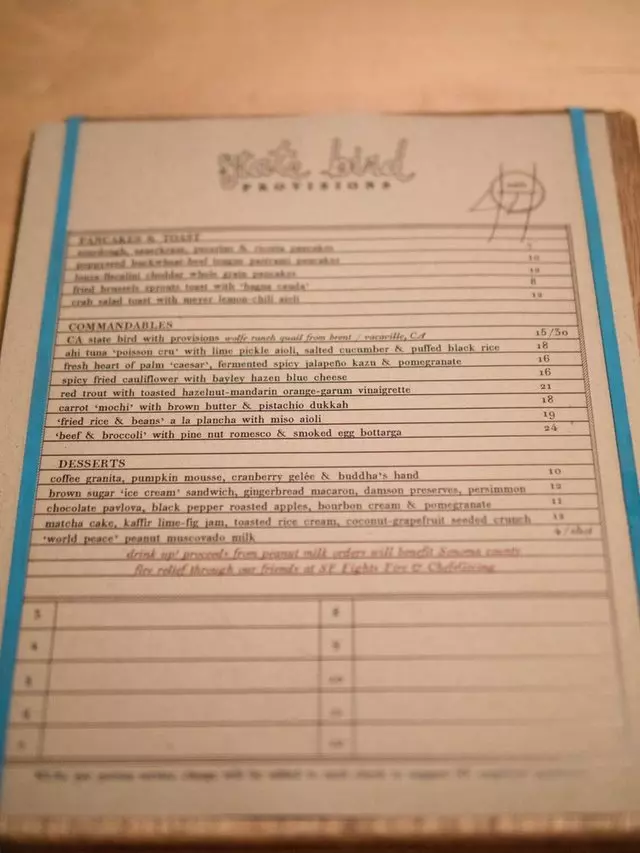 state bird
PROVISIONS
PANCAKES & TOAST
sourdough, sauerkraut, pecorino & ricotta pancakes
buckwheat beef tongue pastrami pancakes 10
fiscalini cheddar whole grain pancakes 12
fried brussels sprouts toast with 'bagna cauda' 8
crab salad toast with meyer lemon-chili aioli 12
COMMANDABLES
CA state bird with provisions wolfe ranch quail from brent / vacaville, CA 15/30
ahi tuna 'poisson cru' with lime pickle aioli, salted cucumber & puffed black rice 18
fresh heart of palm 'caesar', fermented spicy jalapeño kazu & pomegranate 16
spicy fried cauliflower with bayley hazen blue cheese 16
red trout with toasted hazelnut-mandarin orange-garum vinaigrette 21
carrot 'mochi' with brown butter & pistachio dukkah 18
'fried rice & beans' a la plancha with miso aioli 19
'beef & broccoli' with pine nut romesco & smoked egg bottarga 24
DESSERTS
coffee granita, pumpkin mousse, cranberry gelée & buddha's hand 10
brown sugar 'ice cream' sandwich, gingerbread macaron, damson preserves, persimmon 12
chocolate pavlova, black pepper roasted apples, bourbon cream & pomegranate 11
matcha cake, kaffir lime-fig jam, toasted rice cream, coconut-grapefruit seeded crunch 12
'world peace' peanut muscovado milk 4/shot
drink up! proceeds from peanut milk orders will benefit Sonoma county
fire relief through our friends at SF Fights Fire & ChefsGiving